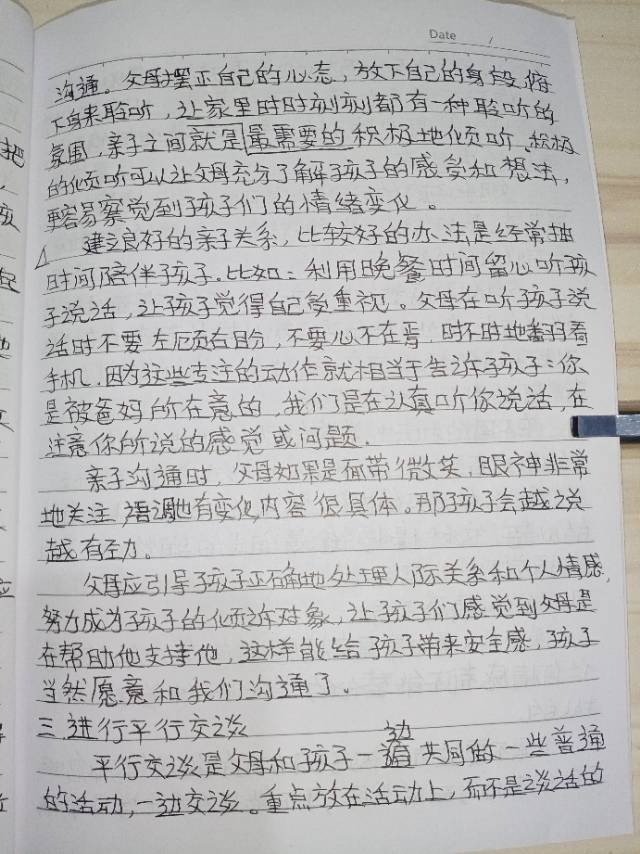 Date /
沟通。父母摆正自己的心态，放下自己的身段，俯
下身来聆听，让家里时时刻刻都有一种聆听的
氛围，亲子之间就是最需要的积极地倾听，积极
的倾听可以让父母充分了解孩子的感觉和想法，
更容易察觉到孩子们的情绪变化。
建立良好的亲子关系，比较好的办法是经常抽
时间陪伴孩子。比如：利用晚餐时间留心听孩
子说话，让孩子觉得自己受重视。父母在听孩子说
话时不要左顾右盼，不要心不在焉，时不时地翻看
手机，因为这些专注的动作就相当于告诉孩子：你
是被爸妈所在意的，我们是在认真听你说话，在
注意你所说的感觉或问题。
亲子沟通时，父母如果是面带微笑，眼神非常
地关注，语调也有变化，内容很具体。那孩子会越说
越有劲。
父母应引导孩子正确地处理人际关系和个人情感，
努力成为孩子的倾诉对象，让孩子们感觉到父母是
在帮助他支持他，这样能给孩子带来安全感，孩子
当然愿意和我们沟通了。
三.进行平行交谈
平行交谈是父母和孩子一边共同做一些普通
的活动，一边交谈。重点放在活动上，而不是谈话的
把